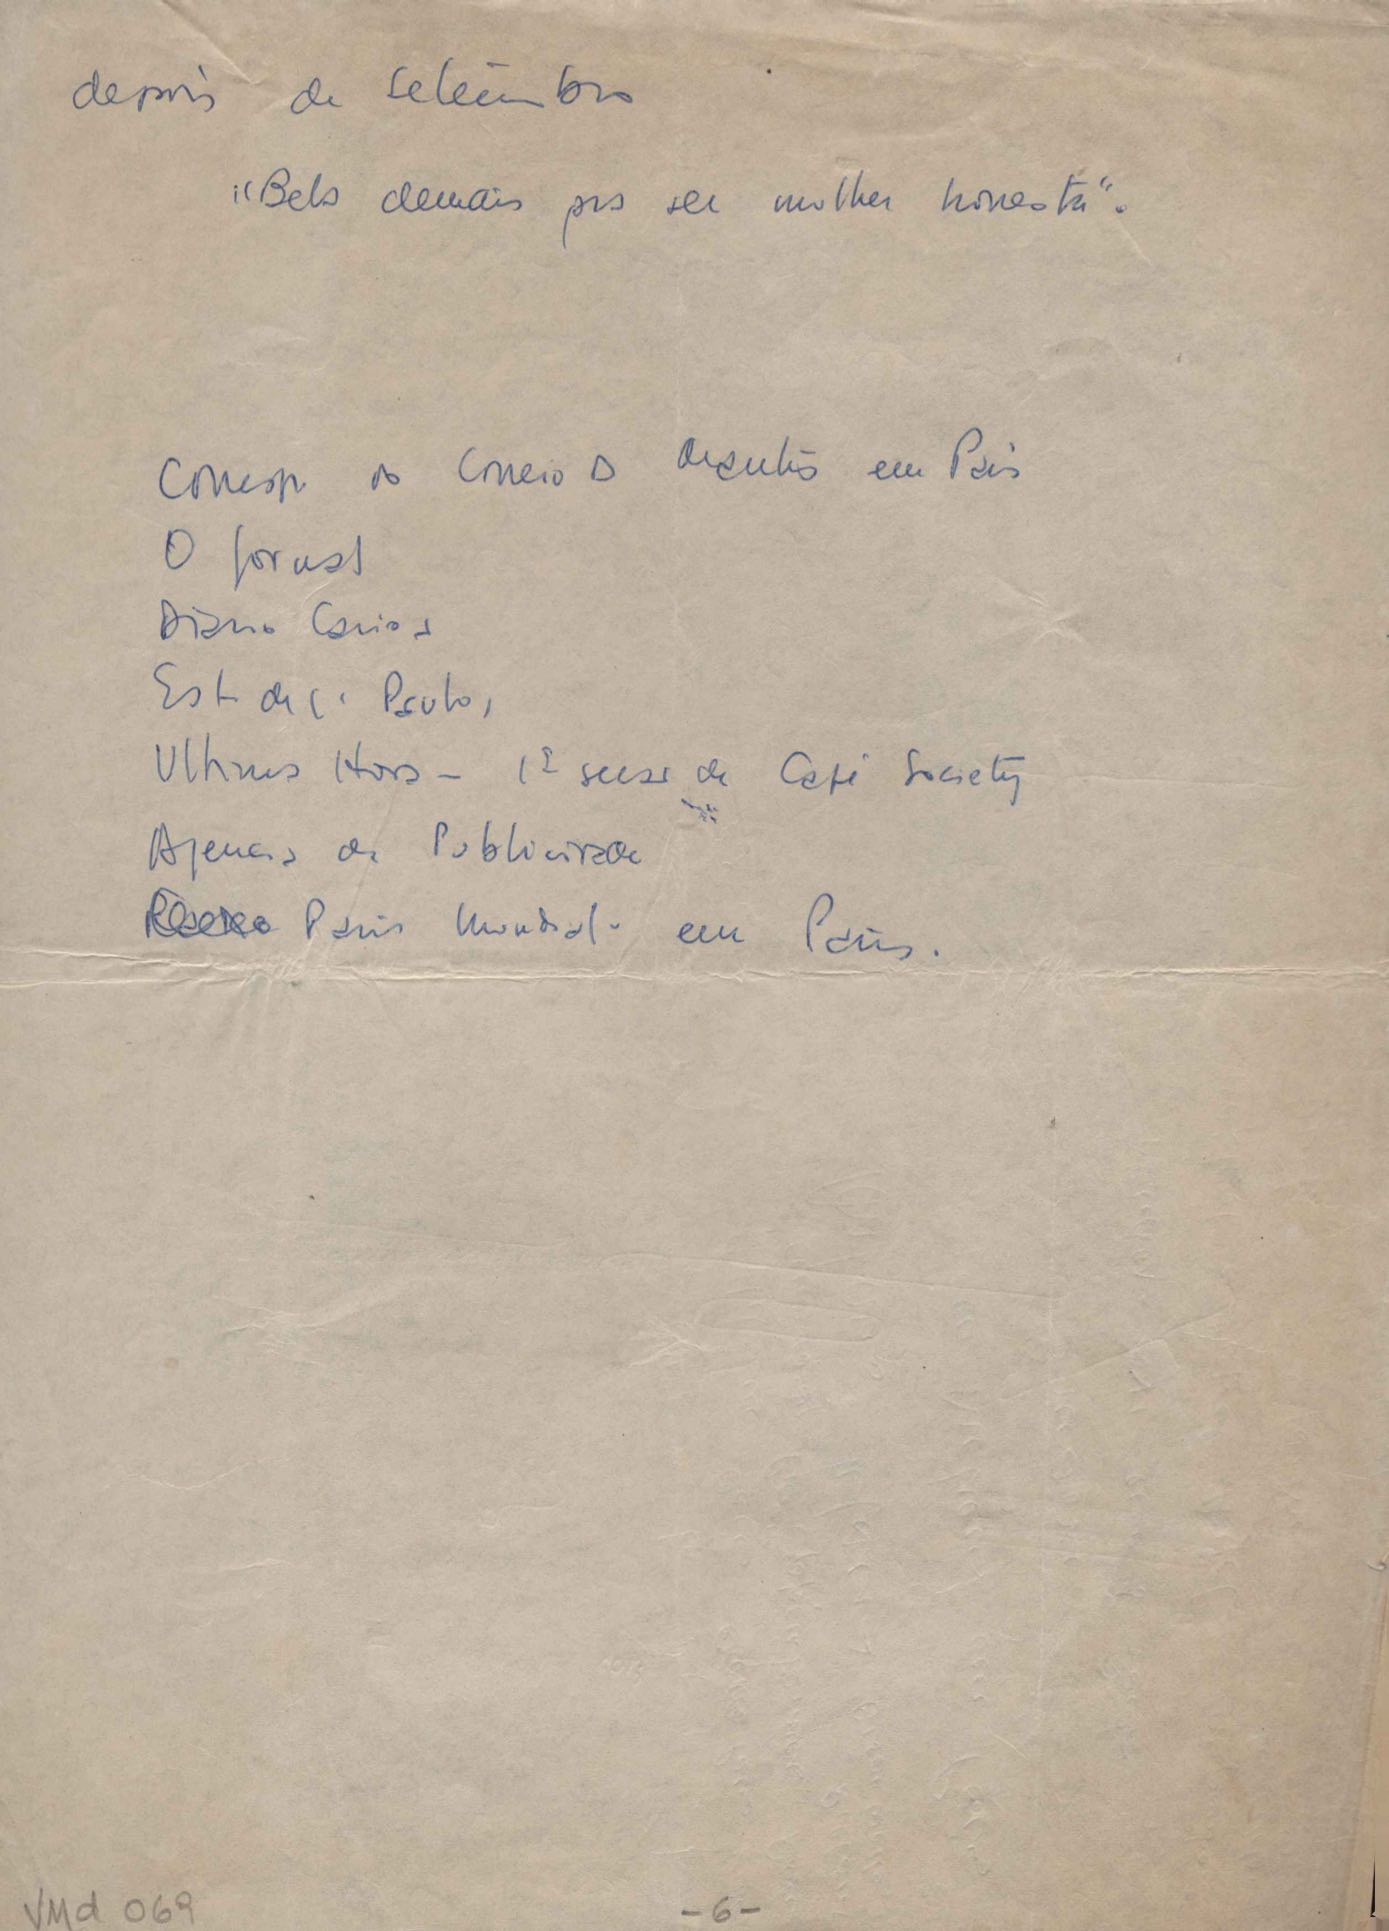 depois de Setembro
"Bela demais pra ser mulher honesta".
Corresp do Correio da manhã em Paris
O Jornal
Diario Carioca
Est. de S. Paulo,
Ultima Hora - 1ª de Café Society
Agencia de Publicidade
Paris Mondial - em Paris.
VMd 069
-6-